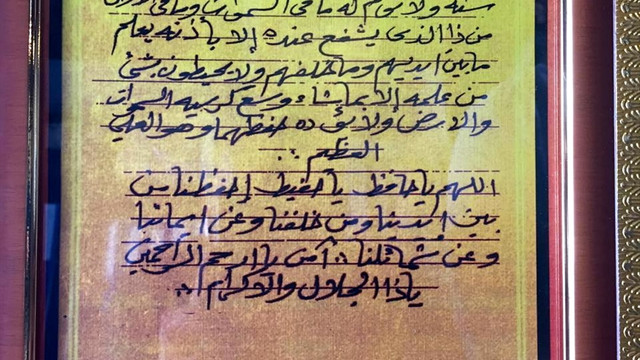 سنة ولا نوم له ما في السموات وما في الارض
من ذا الذى يشفع عنده إلا بأذنه يعلم
ما بين ايديهم وما خلفهم ولا يحيطون بشئ
من علمه إلا بما شاء وسع كرسيه السموات
والارض ولا يؤده حفظهما وهو العلي
العظيم
اللهم يا حافظ يا حفيظ إحفظنا من
بين ايدينا ومن خلفنا وعن ايماننا
وعن شمائلنا آمن يا ارحم الراحمين
يا ذا الجلال والاكرام